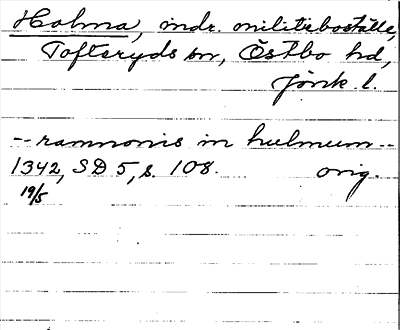 Holma, indr. militieboställe,
Tofteryds sn, Östbo hd,
Jönk l.
-- ramnonis in hulmum --
1342, SD 5, s. 108. orig.
19/5